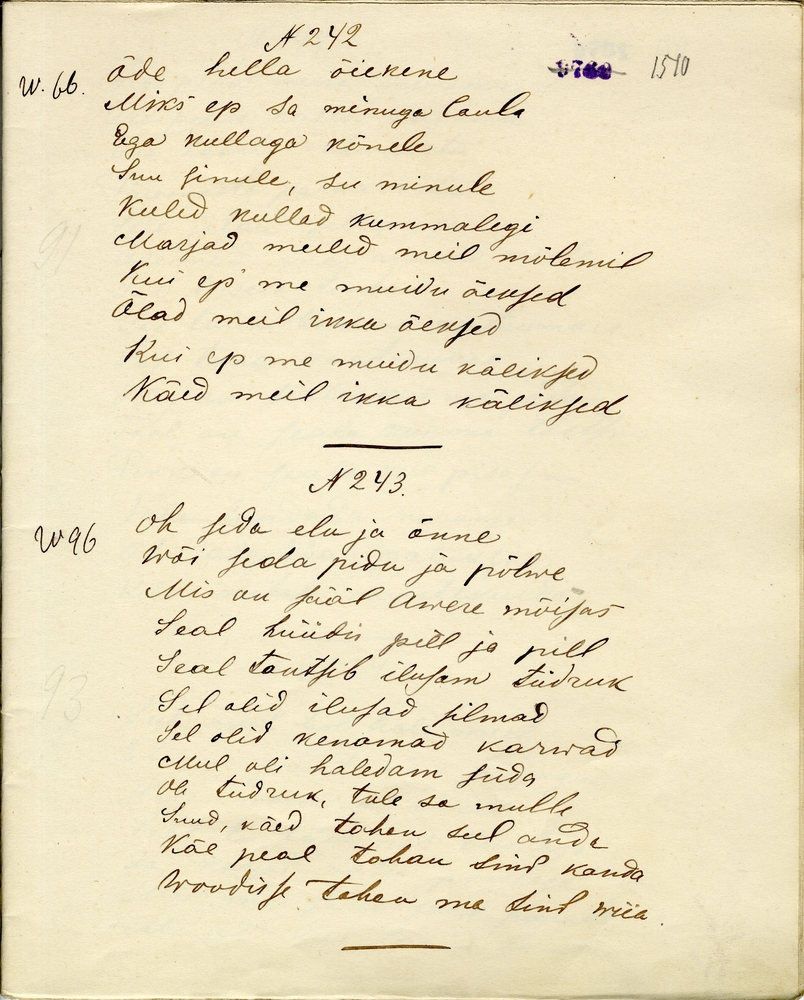 N 242
W. 66.
1510
Õde hella õiekene
Miks ep sa minuga laula
Ega kullaga kõnele
Suu sinule, su minule
Keeled kullad kummalegi
Marjad meeled meil mõlemil
Kui ep me muidu õeksed
Õlad meil ikka õeksed
Kui ep me muidu käliksed
Käed meil ikka käliksed
N 243.
W 96
Oh seda elu ja õnne
Wõi seda pidu ja põlwe
Mis on sääl Awere mõisas
Seal hüüdis pill ja pill
Seal tantsib ilusam tüdruk
Sel olid ilusad silmad
Sel olid kenamad karwad
Mul oli haledam süda
Oh tüdruk, tule sa mulle
Suud, käed tahan seel anda
Käe peal tahan sind kanda
Woodisse tahan ma sind wiia.
91
93